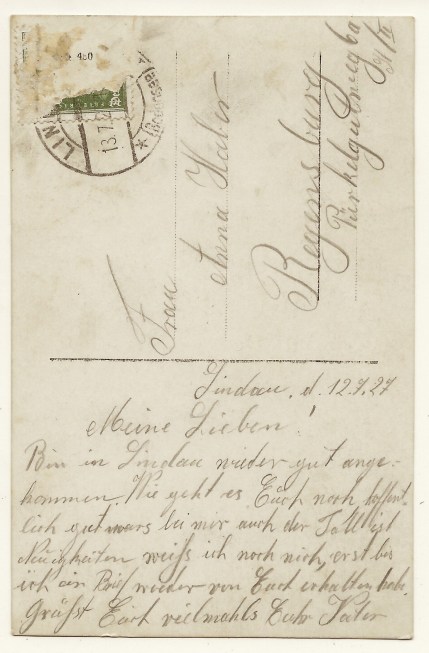 LIN
13.7.2
(Bodensee)
Frau
Anna Hater
Regensburg
Pürkelgut
91/II
Lindau, d. 12.7.27
Meine Lieben!
Bin in Lindau wieder gut ange-
kommen. Wie geht es Euch noch hoffent-
lich gut was bei mir auch der Fall ist
Neuigkeiten weiß ich noch nich, erst bis
ich ein Brief wieder von Euch erhalten habe.
Grüßt Euch vielmals Euer Vater